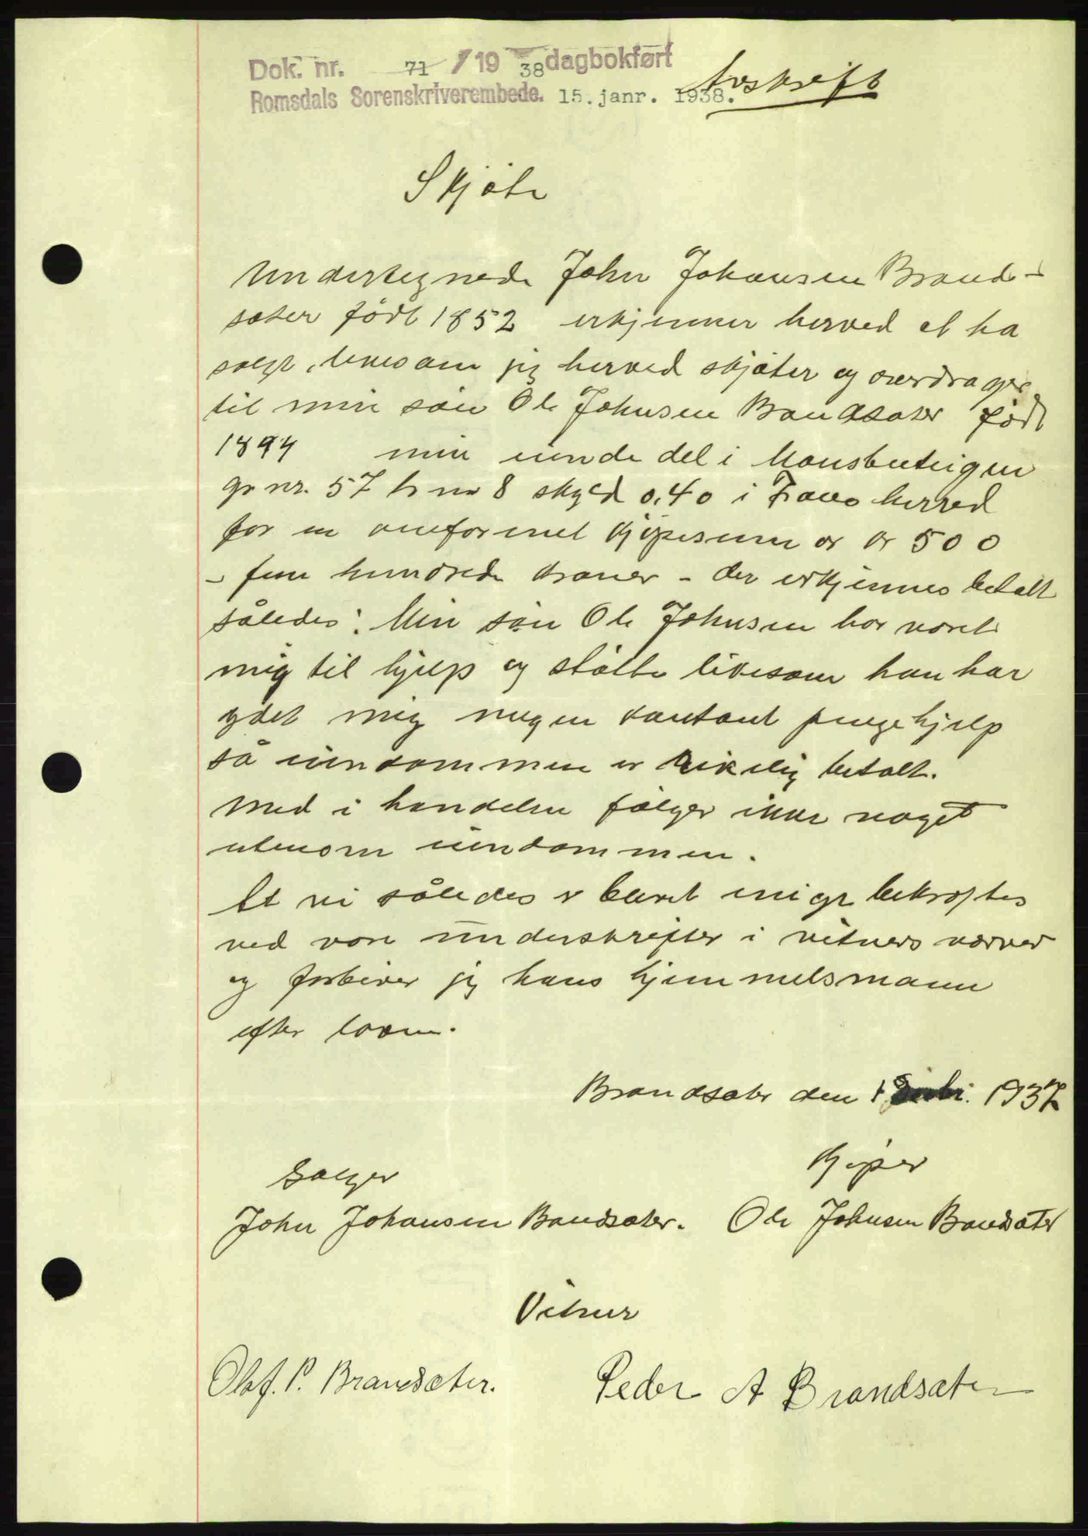 Dok. nr. 71 / 19 38 dagbokført
Romsdals Sorenskriverembede. 15. janr. 1938.
Avskrift
Skjøte
Undertegnede John Johansen Brand-
sæter født 1852 erkjenner herved at ha
solgt, likesom jeg herved skjøter og overdrager
til min søn Ole Johnsen Brandsæter født
1894 min eiendel i
gr nr. 57 br nr 8 skyld 0.40 i herred
for en omforenet kjøpesum av kr 500
- fem hundrede kroner - der erkjennes betalt
således: Min søn Ole Johnsen har været
mig til hjelp og støtte likesom han har
ydet mig nogen kontant pengehjelp
så eiendommen er rikelig betalt.
Med i handelen følger ikke noget
utenom eiendommen.
At vi således er blevet enige bekræftes
ved vore underskrifter i vitners nærvær
og forbliver jeg hans hjemmelsmann
efter loven.
Brandsæter den 1 1937
Sælger
Kjøper
John Johansen Brandsæter. Ole Johnsen Brandsæter
Vitner
Olaf. P. Brandsæter. Peder A Brandsæter